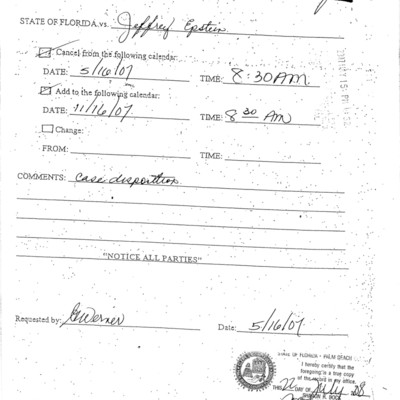 STATE OF FLORIDA vs. Jeffrey Epstein
Cancel from the following calendar:
DATE: 5/16/07 TIME: 8:30 AM.
Add to the following calendar:
DATE: 11/16/07 TIME: 8 30 AM
Change:
FROM: TIME:
COMMENTS: case disposition
"NOTICE ALL PARTIES"
Requested by: Werner Date: 5/16/07
STATE OF FLORIDA • PALM BEACH
I hereby certify that the
foregoing is a true copy
of the record in my office.
THIS 22 DAY OF July 08
SHARON R. BOCK